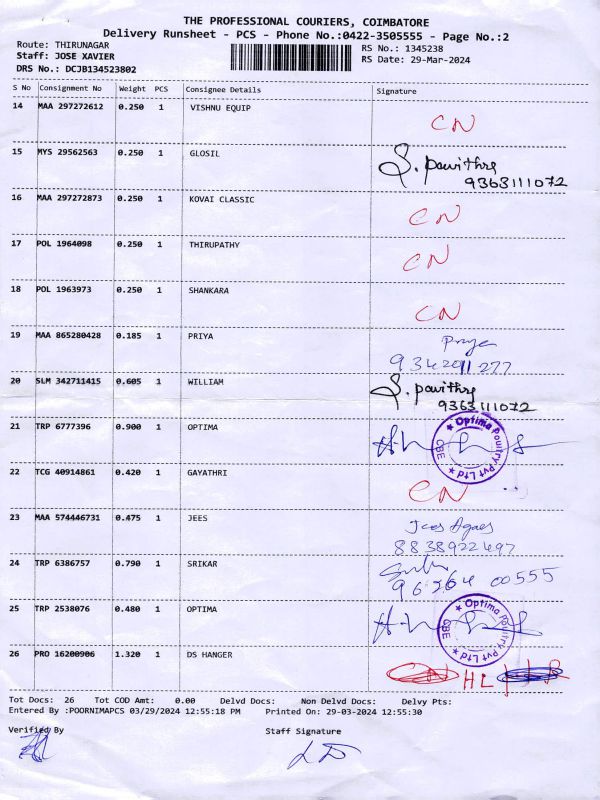 THE PROFESSIONAL COURIERS, COIMBATORE
Delivery Runsheet - PCS - Phone No.:0422-3505555 - Page No.:2
Route: THIRUNAGAR RS No.: 1345238
Staff: JOSE XAVIER RS Date: 29-Mar-2024
DRS No.: DCJB134523802
S No Consignment No Weight PCS Consignee Details Signature
14 MAA 297272612 0.250 1 VISHNU EQUIP CN
15 MYS 29562563 0.250 1 GLOSIL S. pavithra
9363111072
16 MAA 297272873 0.250 1 KOVAI CLASSIC CN
17 POL 1964098 0.250 1 THIRUPATHY CN
18 POL 1963973 0.250 1 SHANKARA CN
19 MAA 865280428 0.185 1 PRIYA Priya
9342011277
20 SLM 342711415 0.605 1 WILLIAM S. pavithra
9363111072
21 TRP 6777396 0.900 1 OPTIMA Optima Poultry Pvt Ltd CBE
22 TCG 40914861 0.420 1 GAYATHRI CN
23 MAA 574446731 0.475 1 JEES Jees Agnes
8838922497
24 TRP 6386757 0.790 1 SRIKAR
00555
25 TRP 2538076 0.480 1 OPTIMA Optima Poultry Pvt Ltd CBE
26 PRO 16200906 1.320 1 DS HANGER CN HL
Tot Docs: 26 Tot COD Amt: 0.00 Delvd Docs: Non Delvd Docs: Delvy Pts:
Entered By :POORNIMAPCS 03/29/2024 12:55:18 PM Printed On: 29-03-2024 12:55:30
Verified By Staff Signature